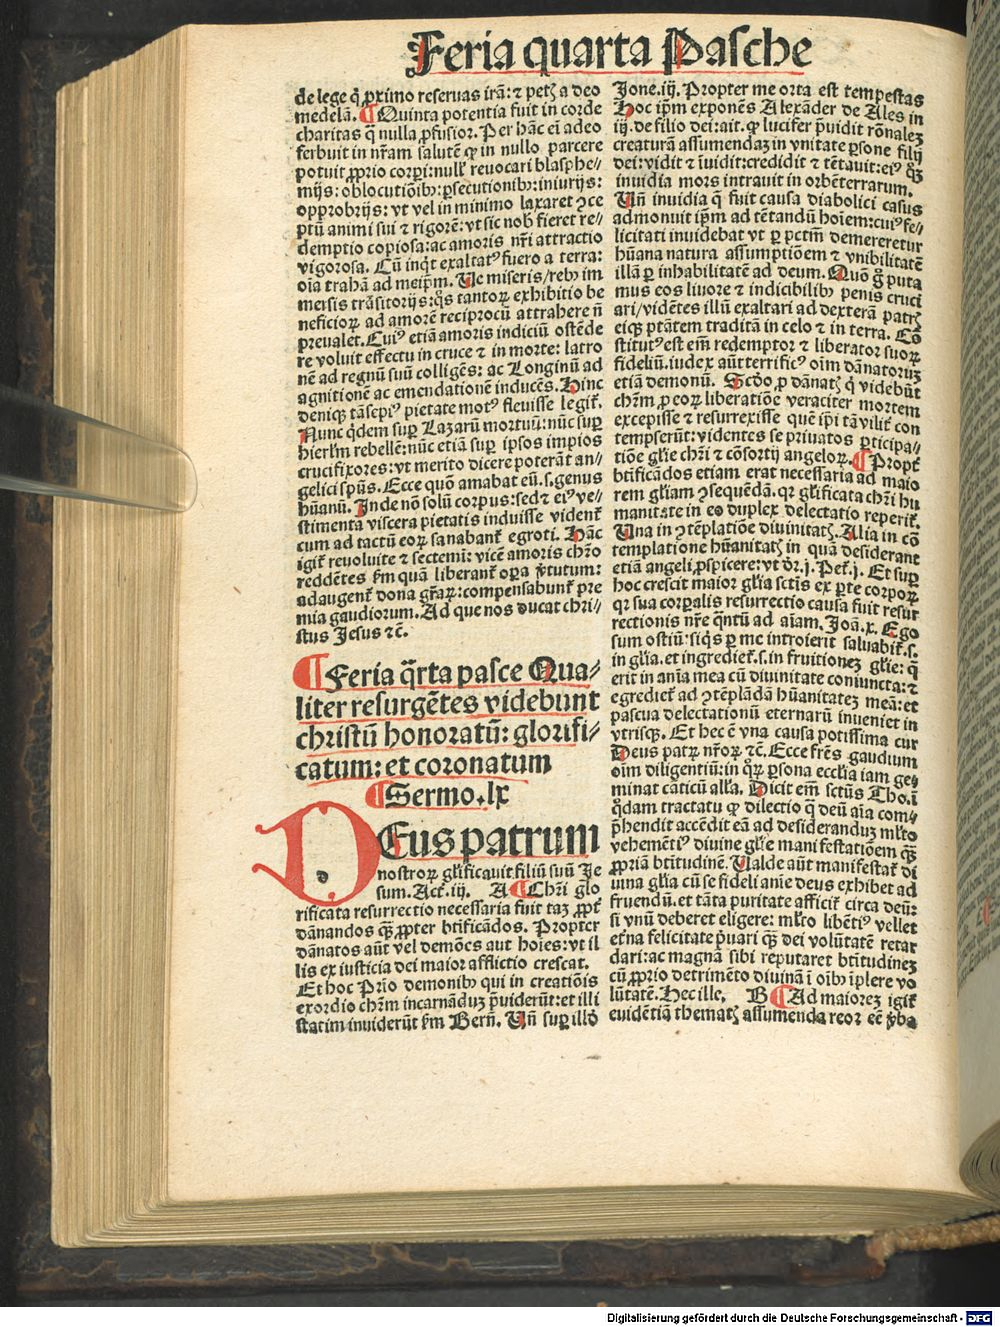 Feria quarta Pasche
de lege q̃ ꝓximo reseruas irã: ⁊ petꝭ a deo
medelã. ¶ Quinta potentia fuit in corde
charitas q̃ nulla ꝓfusior. Per hãc ei adeo
ferbuit in nr̃am salutẽ ꝙ in nullo parcere
potuit ꝓprio corpi: null' reuocari blasphe-
mijs: oblocutiõibꝰ: ꝑsecutionibꝰ: iniurijs:
opprobrijs: vt vel in minimo laxaret ꝯce
ptũ animi sui ⁊ rigorẽ: vt sic nob̃ fieret re-
demptio copiosa: ac amoris nr̃i attractio
vigorosa. Cũ inqͥt exaltatꝰ fuero a terra:
oĩa trahã ad meip̃m. Ue miseris/rebꝰ im
mersis trãsitorijs: qͦs tantoꝝ exhibitio be
neficioꝝ ad amorẽ reciprocũ attrahere ñ
preualet. Cuiꝰ etiã amoris indiciũ ostẽde
re voluit effectu in cruce ⁊ in morte: latro
nẽ ad regnũ suũ colligẽs: ac Longinũ ad
agnitionẽ ac emendationẽ inducẽs. Hinc
deniqꝫ tã sepiꝰ pietate motꝰ fleuisse legit̃.
Nunc qͥdem suꝑ Lazarũ mortuũ: nũc suꝑ
hierlm̃ rebellẽ: nũc etiã suꝑ ipsos impios
crucifixores: vt merito dicere poterãt an-
gelici sp̃us. Ecce quõ amabat eũ. s. genus
hũanũ. Inde nõ solũ corpus: sed ⁊ eiꝰ ve-
stimenta viscera pietatis induisse vident̃
cum ad tactũ eoꝝ sanabant̃ egroti. Hãc
igit̃ reuoluite ⁊ sectemi: vicẽ amoris chr̃o
reddẽtes ẜm quã liberant̃ oꝑa v̓tutum:
adaugent̃ dona gr̃aꝝ: compensabunt̃ pre
mia gaudiorum. Ad que nos ducat chri-
stus Jesus ⁊c̃.
¶ Feria q̃rta pasce Qua-
liter resurgẽtes videbunt
christũ honoratũ: glorifi-
catum: et coronatum
¶ Sermo. lx
DEus patrum
nostroꝝ gl̓ificauit filiũ suũ Je
sum. Act̃. iij. A ¶ Chr̃i glo
rificata resurrectio necessaria fuit taꝫ ꝓpt̃
dãnandos qꝫ ꝓpter btificãdos. Propter
dãnatos aũt vel demões aut hoĩes: vt il
lis ex iusticia dei maior afflictio crescat.
Et hoc Pr̃io demonibꝰ qui in creatiõis
exordio chr̃m incarnãduꝫ p̃uiderũt: et illi
statim inuiderũt ẜm Bern̄. Uñ suꝑ illo̓
Jone. iij. Propter me orta est tempestas
Hoc ip̃m exponẽs Alexãder de Ales in
iij. de filio dei: ait. ꝙ lucifer p̃uidit rõnaleꝫ
creaturã assumendaꝫ in vnitate ꝑsone filij
dei: vidit ⁊ ĩuidit: credidit ⁊ tẽtauit: eiꝰ qꝫ
inuidia mors intrauit in orbẽterrarum.
Uñ inuidia q̃ fuit causa diabolici casus
admonuit ip̃m ad tẽtandũ hoĩem: cuiꝰ fe-
licitati inuidebat vt ꝑ pctm̃ demereretur
hũana natura assumptiõem ⁊ vnibilitatẽ
illã ꝑ inhabilitatẽ ad deum. Quõ g̊ puta
mus eos liuore ⁊ indicibilibꝰ penis cruci
ari/ vidẽtes illũ exaltari ad dexterã patrꝭ
eiqꝫ ptãtem traditã in celo ⁊ in terra. Cõ
stitutꝰ est em̃ redemptor ⁊ liberator suoꝝ
fideliũ. iudex aũt terrificꝰ oĩm dãnatoruꝫ
etiã demonũ. Scd̓o ꝓ dãnatꝭ q̃ videbũt
chr̃m ꝓ eoꝝ liberatiõe veraciter mortem
excepisse ⁊ resurrexisse quẽ ip̃i tã vilit̃ con
tempserũt: videntes se priuatos ꝑticipa-
tiõe gl̓ie chr̃i ⁊ cõsortij angeloꝝ. ¶ Propt̃
btificãdos etiam erat necessaria ad maio
rem gl̓iam ꝯsequẽdã. qꝛ gl̓ificata chr̃i hu
manitate in eo duplex delectatio reperit̃.
Una in ꝯtẽplatiõe diuinitatꝭ. Alia in cõ
templatione hũanitatꝭ in quã desiderant
etiã angeli ꝓspicere: vt dr̃. j. Pet̃. j. Et suꝑ
hoc crescit maior gl̓ia sctĩs ex ꝑte corpoꝝ
qꝛ sua corꝑalis resurrectio causa fuit resur
rectionis nr̃e q̃ntũ ad aĩam. Joã. x. Ego
sum ostiũ: siqͥs ꝑ me introierit saluabit̃. s.
in gl̓ia. et ingrediet̃. s. in fruitioneꝫ gl̓ie: q̃
erit in aĩa mea cũ diuinitate coniuncta: ⁊
egrediet̃ ad ꝯtẽplãdã hũanitateꝫ meã: et
pascua delectationũ eternarũ inueniet in
vtrisqꝫ. Et hec ẽ vna causa potissima cur
Deus patꝝ nr̃oꝝ ⁊c̃. Ecce fr̃es gaudium
oĩm diligentiũ: in qͦꝝ ꝑsona eccl̓ia iam ge-
minat canticũ all'a. Dicit em̃ sctũs Tho. ĩ
qͦdam tractatu ꝙ dilectio q̃ deũ aĩa com-
p̃hendit accẽdit eã ad desideranduꝫ ml̓to
vehemẽtiꝰ diuine gl̓ie manifestatiõem qꝫ
ꝓpriã btĩtudinẽ. Ualde aũt manifestat̃ di
uina gl̓ia cũ se fideli anĩe deus exhibet ad
fruendũ. et tãta puritate afficit̃ circa deũ:
si vnũ deberet eligere: ml̓to libẽtiꝰ vellet
et̃na felicitate p̓uari qꝫ dei volũtatẽ retar
dari: ac magnã sibi reputaret btĩtudineꝫ
cũ ꝓprio detrimẽto diuinã ĩ oĩbꝰ ĩplere vo
lũtatẽ. Hec ille. B ¶ Ad maioreꝫ igit̃
euidẽtiã thematꝭ assumenda reor eẽ v̓ba
Digitalisierung gefördert durch die Deutsche Forschungsgemeinschaft - DFG